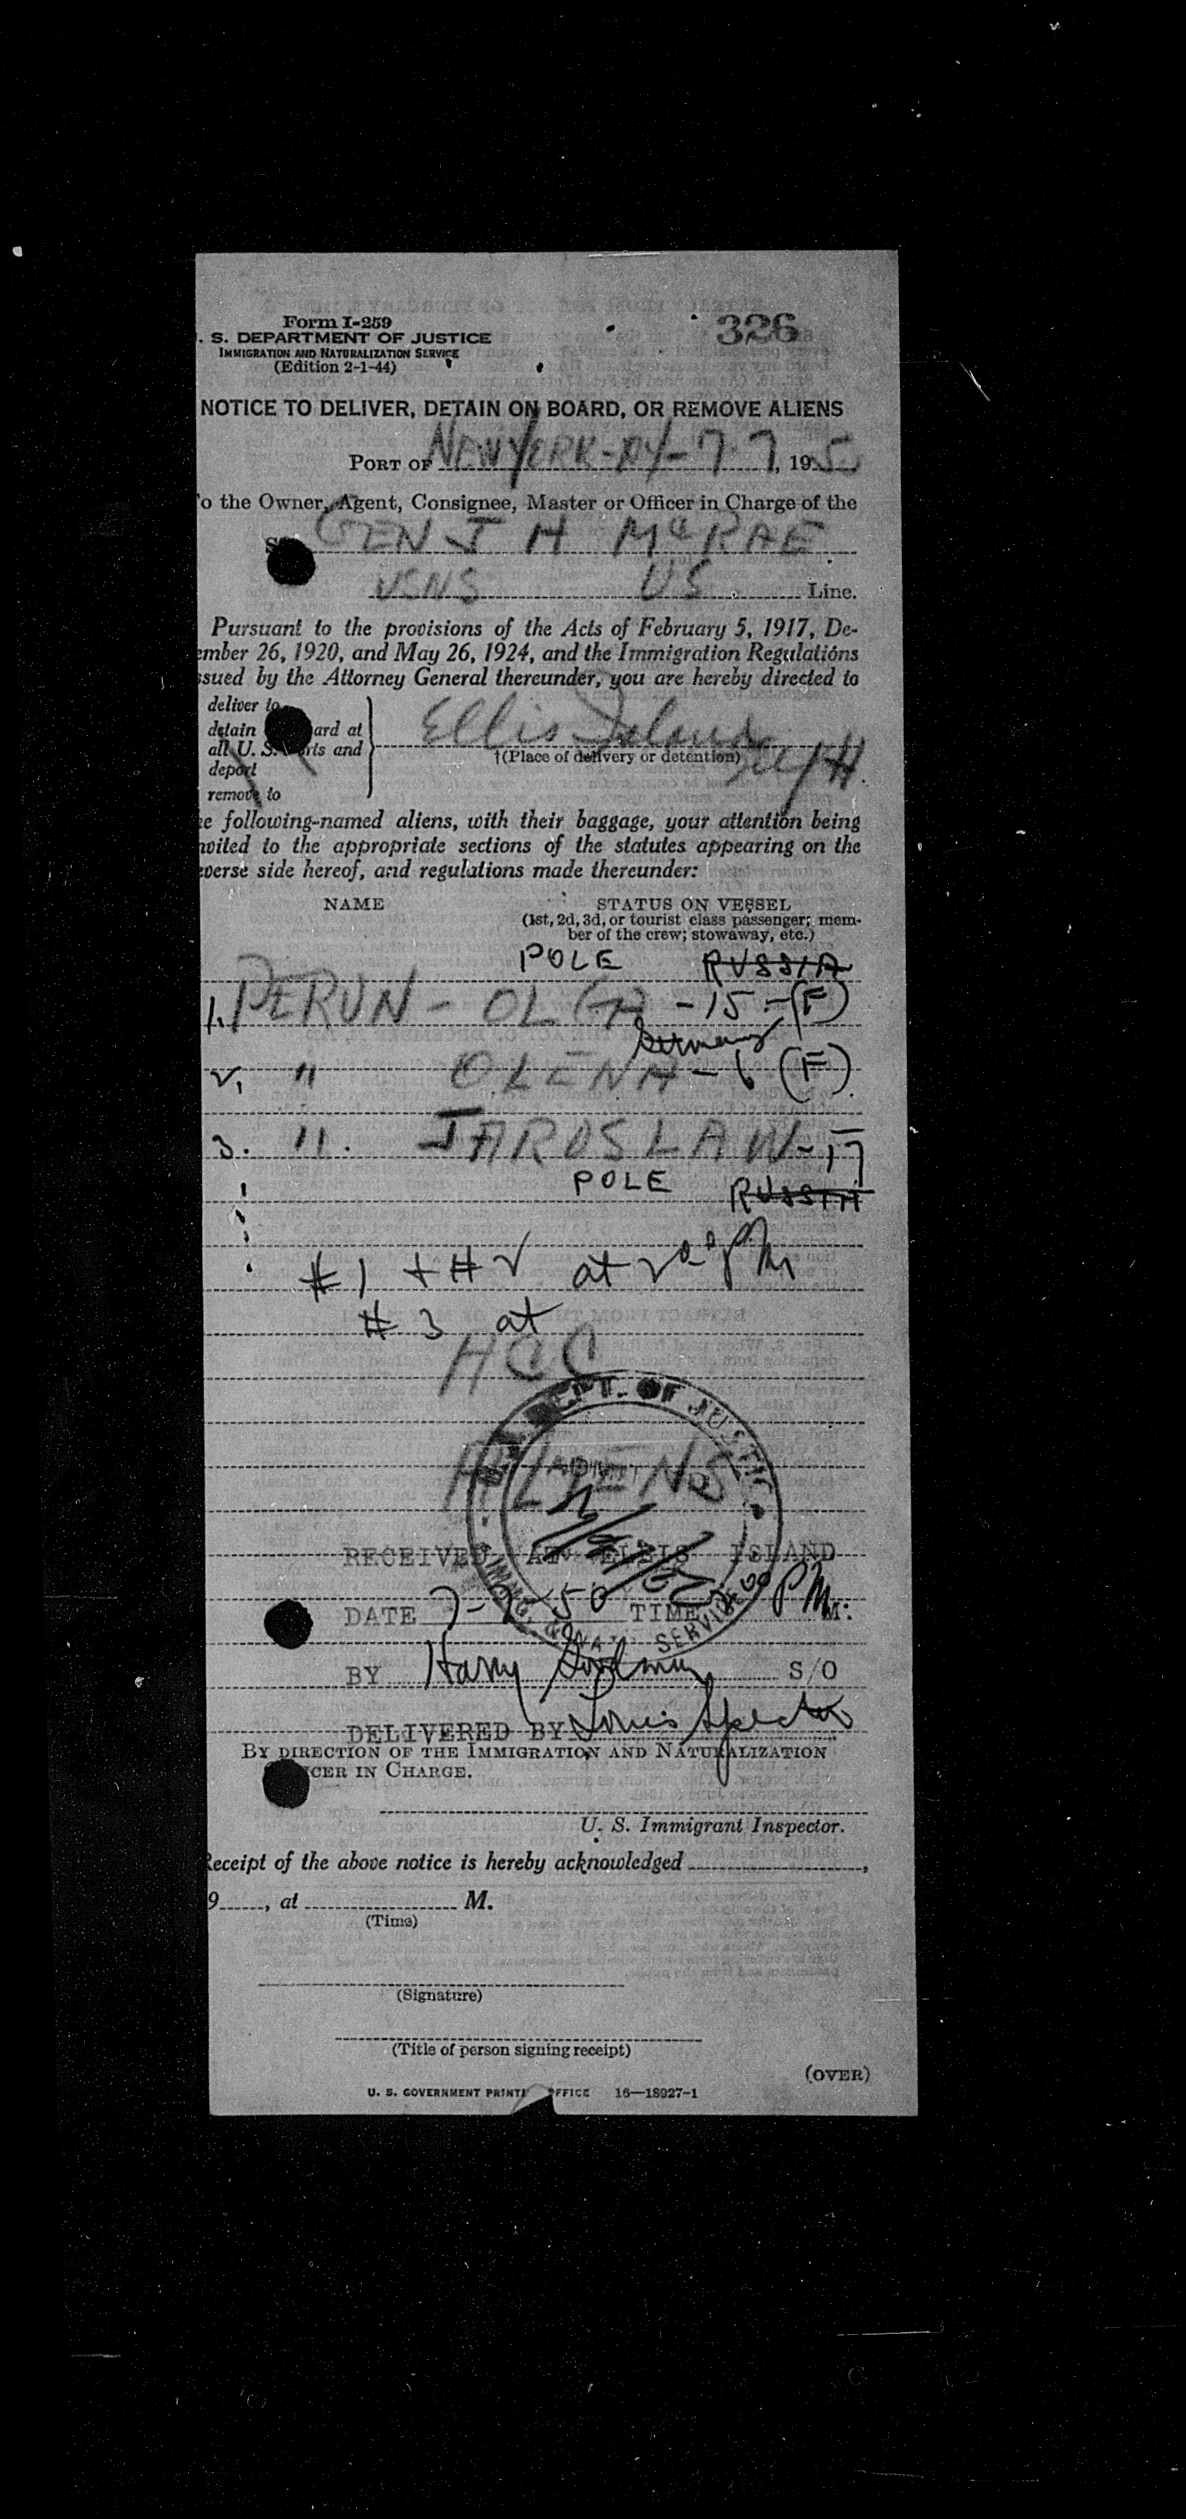 326
Form I-259
. S. DEPARTMENT OF JUSTICE
IMMIGRATION AND NATURALIZATION SERVICE
(Edition 2-1-44)
NOTICE TO DELIVER, DETAIN ON BOARD, OR REMOVE ALIENS
PORT OF NEW YORK-NY-7-7, 1950
o the Owner, Agent, Consignee, Master or Officer in Charge of the
GEN J H McRAE
USNS US Line.
Pursuant to the provisions of the Acts of February 5, 1917, De-
ember 26, 1920, and May 26, 1924, and the Immigration Regulations
ssued by the Attorney General thereunder, you are hereby directed to
deliver to
detain ard at
all U. S. rts and
deport
remove to
Ellis Island
†(Place of delivery or detention)
e following-named aliens, with their baggage, your attention being
nvited to the appropriate sections of the statutes appearing on the
everse side hereof, and regulations made thereunder:
NAME STATUS ON VESSEL
(1st, 2d, 3d, or tourist class passenger; mem-
ber of the crew; stowaway, etc.)
POLE RUSSIA
1. PERUN - OLGA - 15 - (F)
Germany
2. " OLENA - 6 (F)
3. " JAROSLAW - 17
POLE RUSSIA
#1 + #2 at 2 00 PM
#3 at
ALIENS
DEPT. OF JUSTICE
SERVICE
RECEIVED AT ELLIS ISLAND
DATE 7-7-50 TIME PM M:
BY Harry S/O
DELIVERED BY Louis Spector
BY DIRECTION OF THE IMMIGRATION AND NATURALIZATION
ICER IN CHARGE.
U. S. Immigrant Inspector.
Receipt of the above notice is hereby acknowledged ,
9 , at M.
(Time)
(Signature)
(Title of person signing receipt)
(OVER)
U. S. GOVERNMENT PRINTI FFICE 16—18927-1